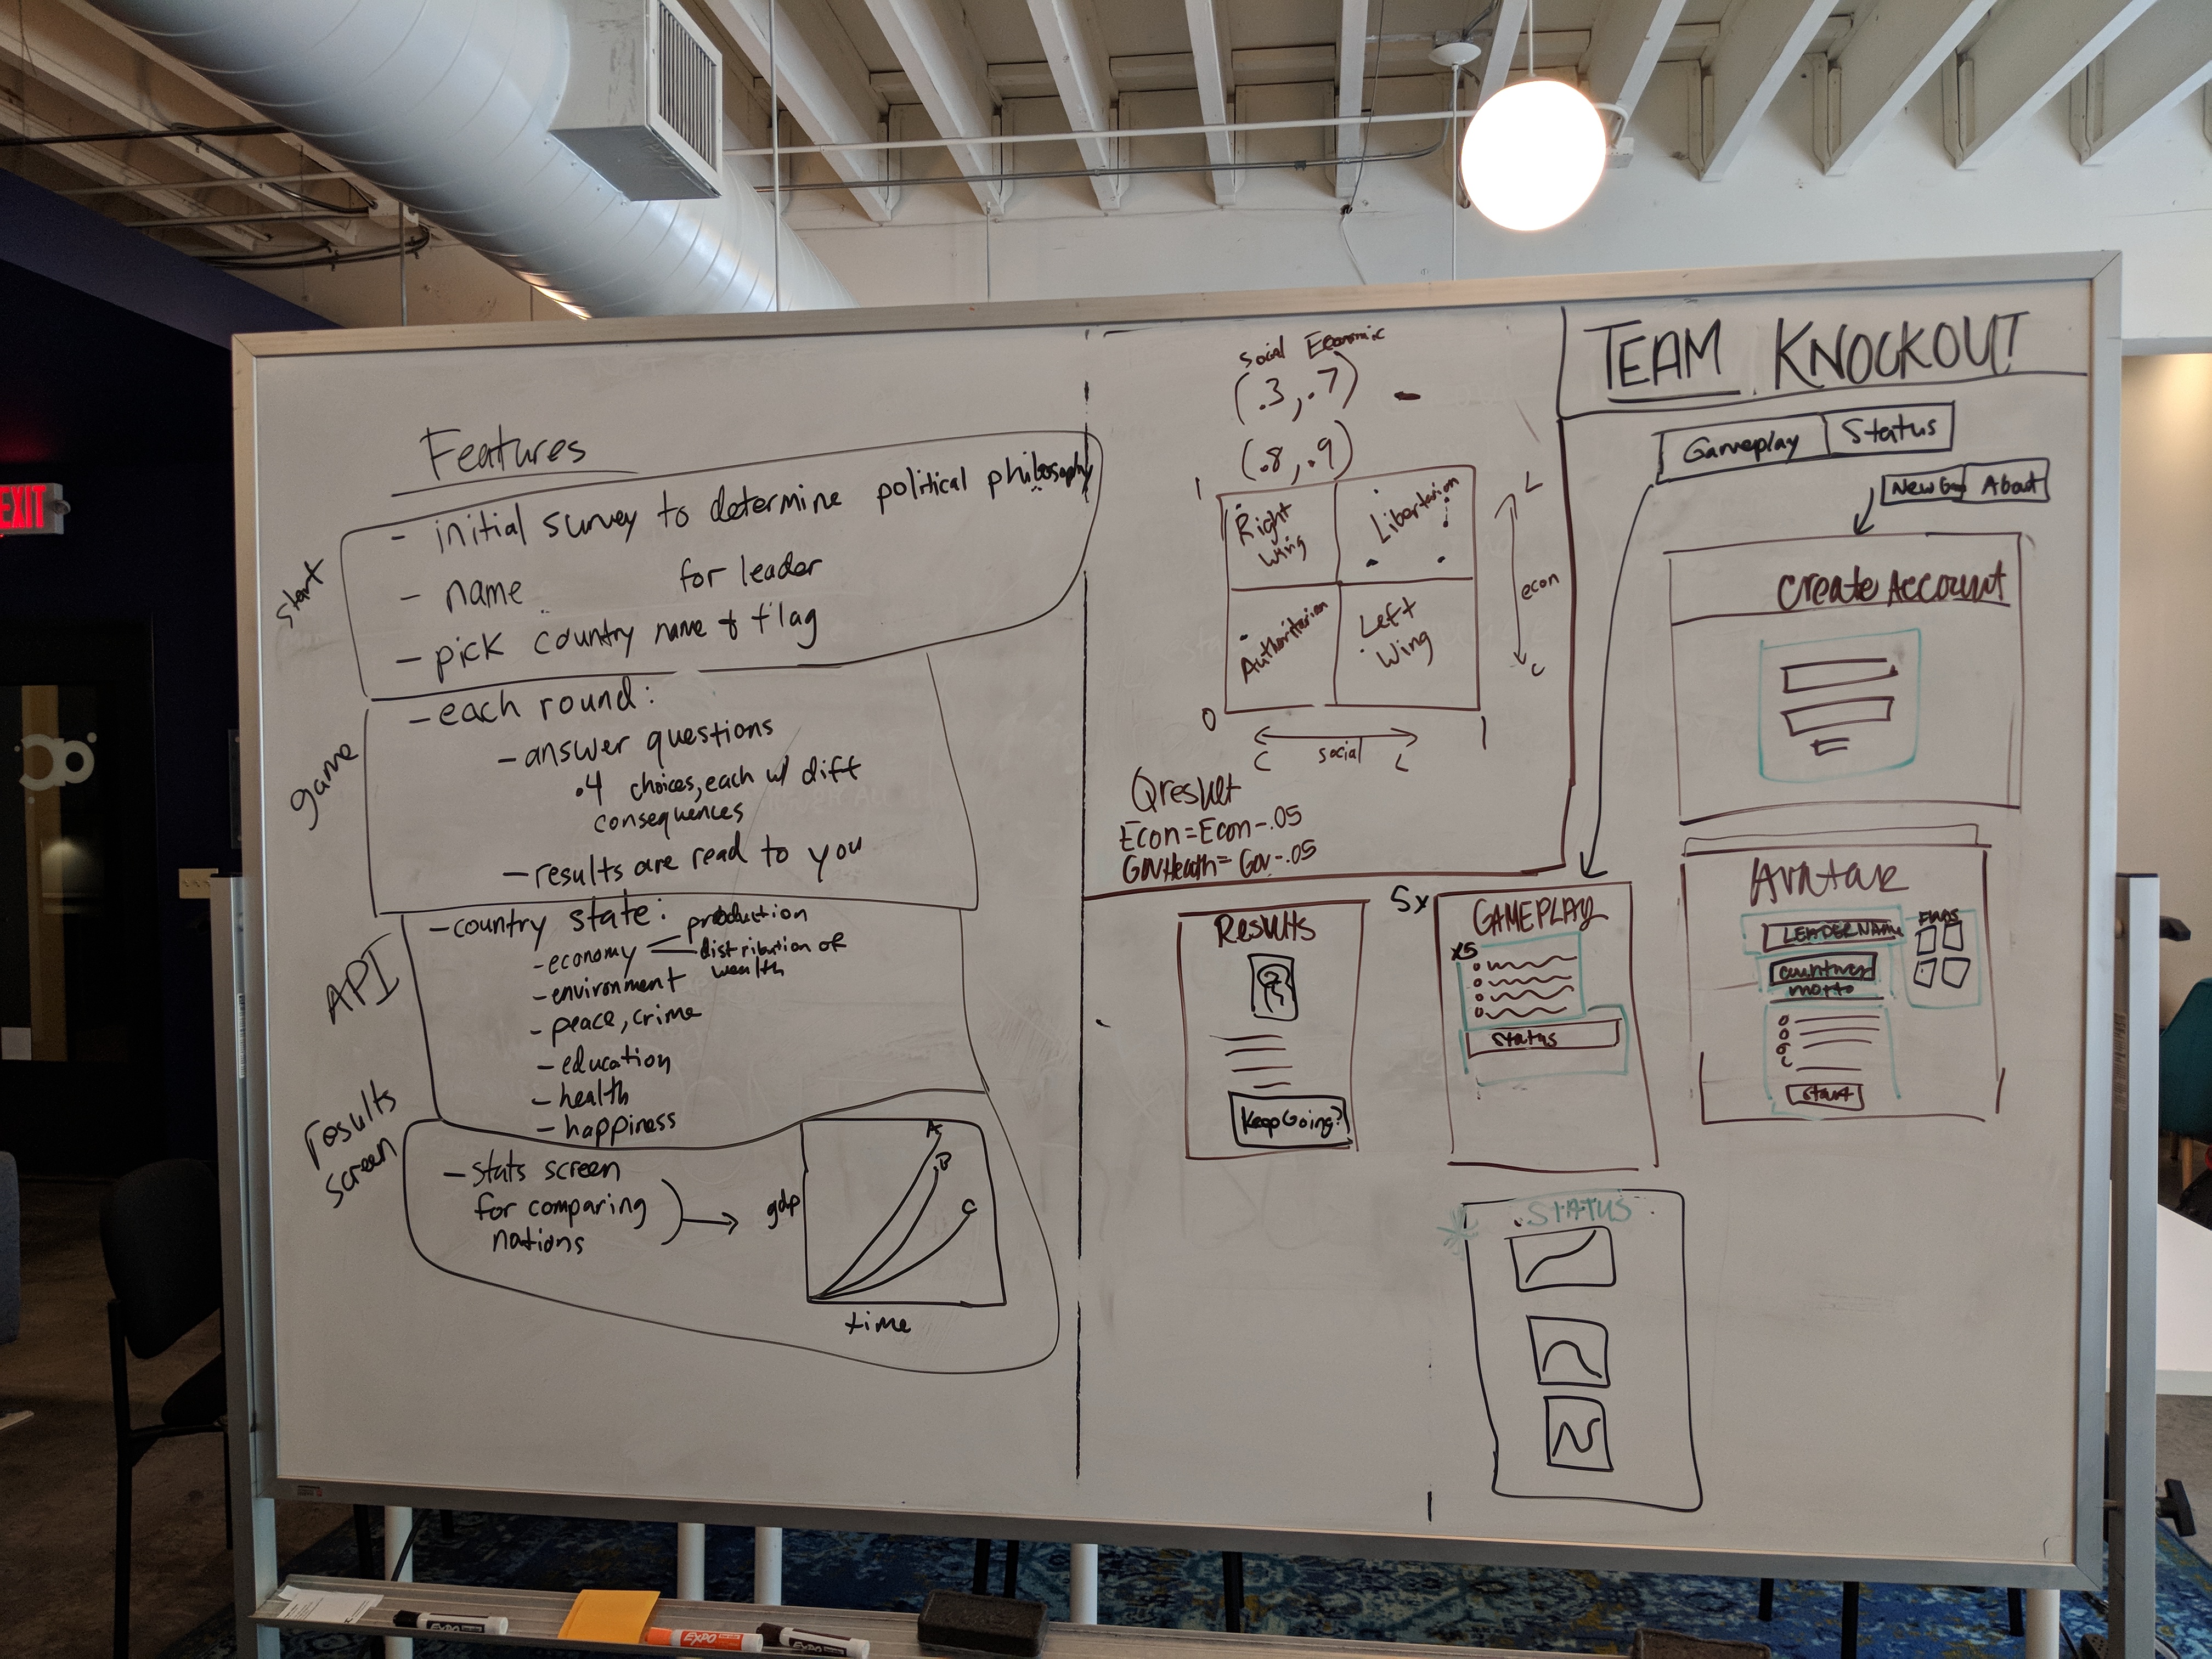 EXIT
Features
- initial survey to determine political philosophy
- name for leader
- pick country name & flag
start
- each round:
- answer questions
.4 choices, each w/ diff
consequences
- results are read to you
game
- country state:
- economy
production
distribution of
wealth
- environment
- peace, crime
- education
- health
- happiness
API
results
screen
- stats screen
for comparing
nations
gdp
A
B
C
time
Social Economic
(.3, .7)
(.8, .9)
1
Right
Wing
Libertarian
Authoritarian
Left
Wing
L
econ
C
0
1
C social L
Qresult
Econ = Econ - .05
GovHealth = Gov - .05
TEAM KNOCKOUT
Gameplay
Status
About
Create Account
Results
Keep Going?
5x
GAMEPLAY
x5
status
Avatar
LEADER NAME
FLAGS
country
motto
start
STATUS
EXPO